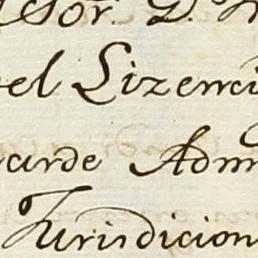 Sor. D.
el Lizenci
arde Adm
Jurisdicion